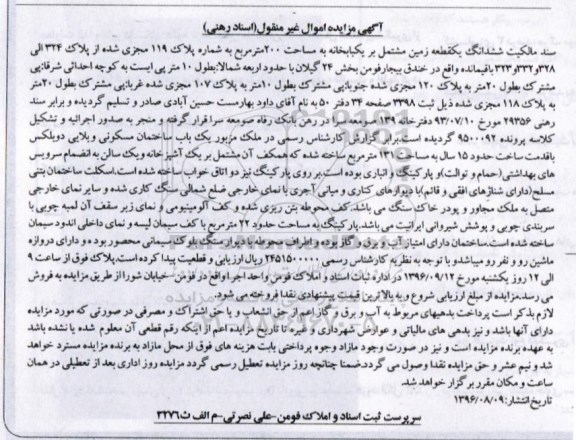 آگهی مزایده اموال غیر منقول(اسناد رهنی)
سند مالکیت ششدانگ یکقطعه زمین مشتمل بر یکبابخانه به مساحت ۲۰۰مترمربع به شماره پلاک ۱۱۹ مجزی شده از پلاک ۳۲۴ الی
۳۲۸و۳۳۲و۳۴۳ باقیمانده واقع در خندق بیجارفومن بخش ۲۴ گیلان با حدود اربعه شمالا:بطول ۱۰ متر پی ایست به کوچه احداثی شرقاپی
مشترک بطول ۲۰متر به پلاک ۱۲۰ مجزی شده جنوباپی مشترک بطول ۱۰متر به پلاک ۱۰۷ مجزی شده غرباپی مشترک بطول ۲۰متر
به پلاک ۱۱۸ مجزی شده ذیل ثبت ۳۳۹۸ صفحه ۳۴ دفتر ۵۰ به نام آقای داود بهارمست حسین آبادی صادر و تسلیم گردیده و برابر سند
رهنی ۲۹۳۵۶ مورخ ۹۳/۰۷/۱۰ دفترخانه ۱۳۹ صومعه سرا در رهن بانک رفاه صومعه سرا قرار گرفته و منجر به صدور اجرائیه و تشکیل
کلاسه پرونده ۹۵۰۰۰۹۲ گردیده است.برابر گزارش کارشناس رسمی در ملک مزبور یک باب ساختمان مسکونی ویلایی دوبلکس
باقدمت ساخت حدود ۱۵ سال به مساحت ۱۳۱ مترمربع ساخته شده که همکف آن مشتمل بر یک آشپزخانه ویک سالن به انضمام سرویس
های بهداشتی(حمام و توالت)و پارکینگ و انباری بوده است.بر روی پارکینگ نیز دو اتاق خواب ساخته شده است.اسکلت ساختمان بتنی
مسلح(دارای شناژهای افقی و قائم)با دیوارهای کناری و میانی آجری با نمای خارجی ضلع شمالی سنگ کاری شده و سایر نمای خارجی
متصل به ملک مجاور و پودر خاک سنگ می باشد.کف محوطه بتن ریزی شده و کف آلومینیومی و نمای زیر سقف آن لمبه چوبی با
سربندی چوبی و پوشش شیروانی ایرانیت می باشد.پارکینگ به مساحت حدود ۲۲ مترمربع با کف سیمان لیسه و نمای داخلی اندود سیمان
ساخته شده است.ساختمان دارای امتیاز آب و برق و گاز بوده و اطراف محوطه با دیوار بلوک سیمانی محصور بوده و دارای دروازه
ماشین رو و نفر رو میباشدو با توجه به نظریه کارشناس رسمی ۲۴۵۱۵۰۰۰۰۰ ریال ارزیابی و قطعیت پیدا کرده است.پلاک فوق از ساعت ۹
الی ۱۲ روز یکشنبه مورخ ۱۳۹۶/۰۹/۱۲ در اداره ثبت اسناد و املاک فومن واحد اجرا واقع در فومن-خیابان شورا از طریق مزایده به فروش
می رسد.مزایده از مبلغ ارزیابی شروع و به بالاترین قیمت پیشنهادی نقدا فروخته می شود.
لازم بذکر است پرداخت بدهیهای مربوط به آب و برق و گاز اعم از حق انشعاب و یا حق اشتراک و مصرفی در صورتی که مورد مزایده
دارای آنها باشد و نیز بدهی های مالیاتی و عوارض شهرداری و غیره تا تاریخ مزایده اعم از اینکه رقم قطعی آن معلوم شده یا نشده باشد
به عهده برنده مزایده است و نیز در صورت وجود مازاد وجوه پرداختی بابت هزینه های فوق از محل مازاد به برنده مزایده مسترد خواهد
شد و نیم عشر و حق مزایده نقدا وصول می گردد.ضمنا چنانچه روز مزایده تعطیل رسمی گردد مزایده روز اداری بعد از تعطیلی در همان
ساعت و مکان مقرر برگزار خواهد شد.
تاریخ انتشار:۱۳۹۶/۰۸/۰۹
سرپرست ثبت اسناد و املاک فومن-علی نصرتی-م الف ث۳۲۷۶